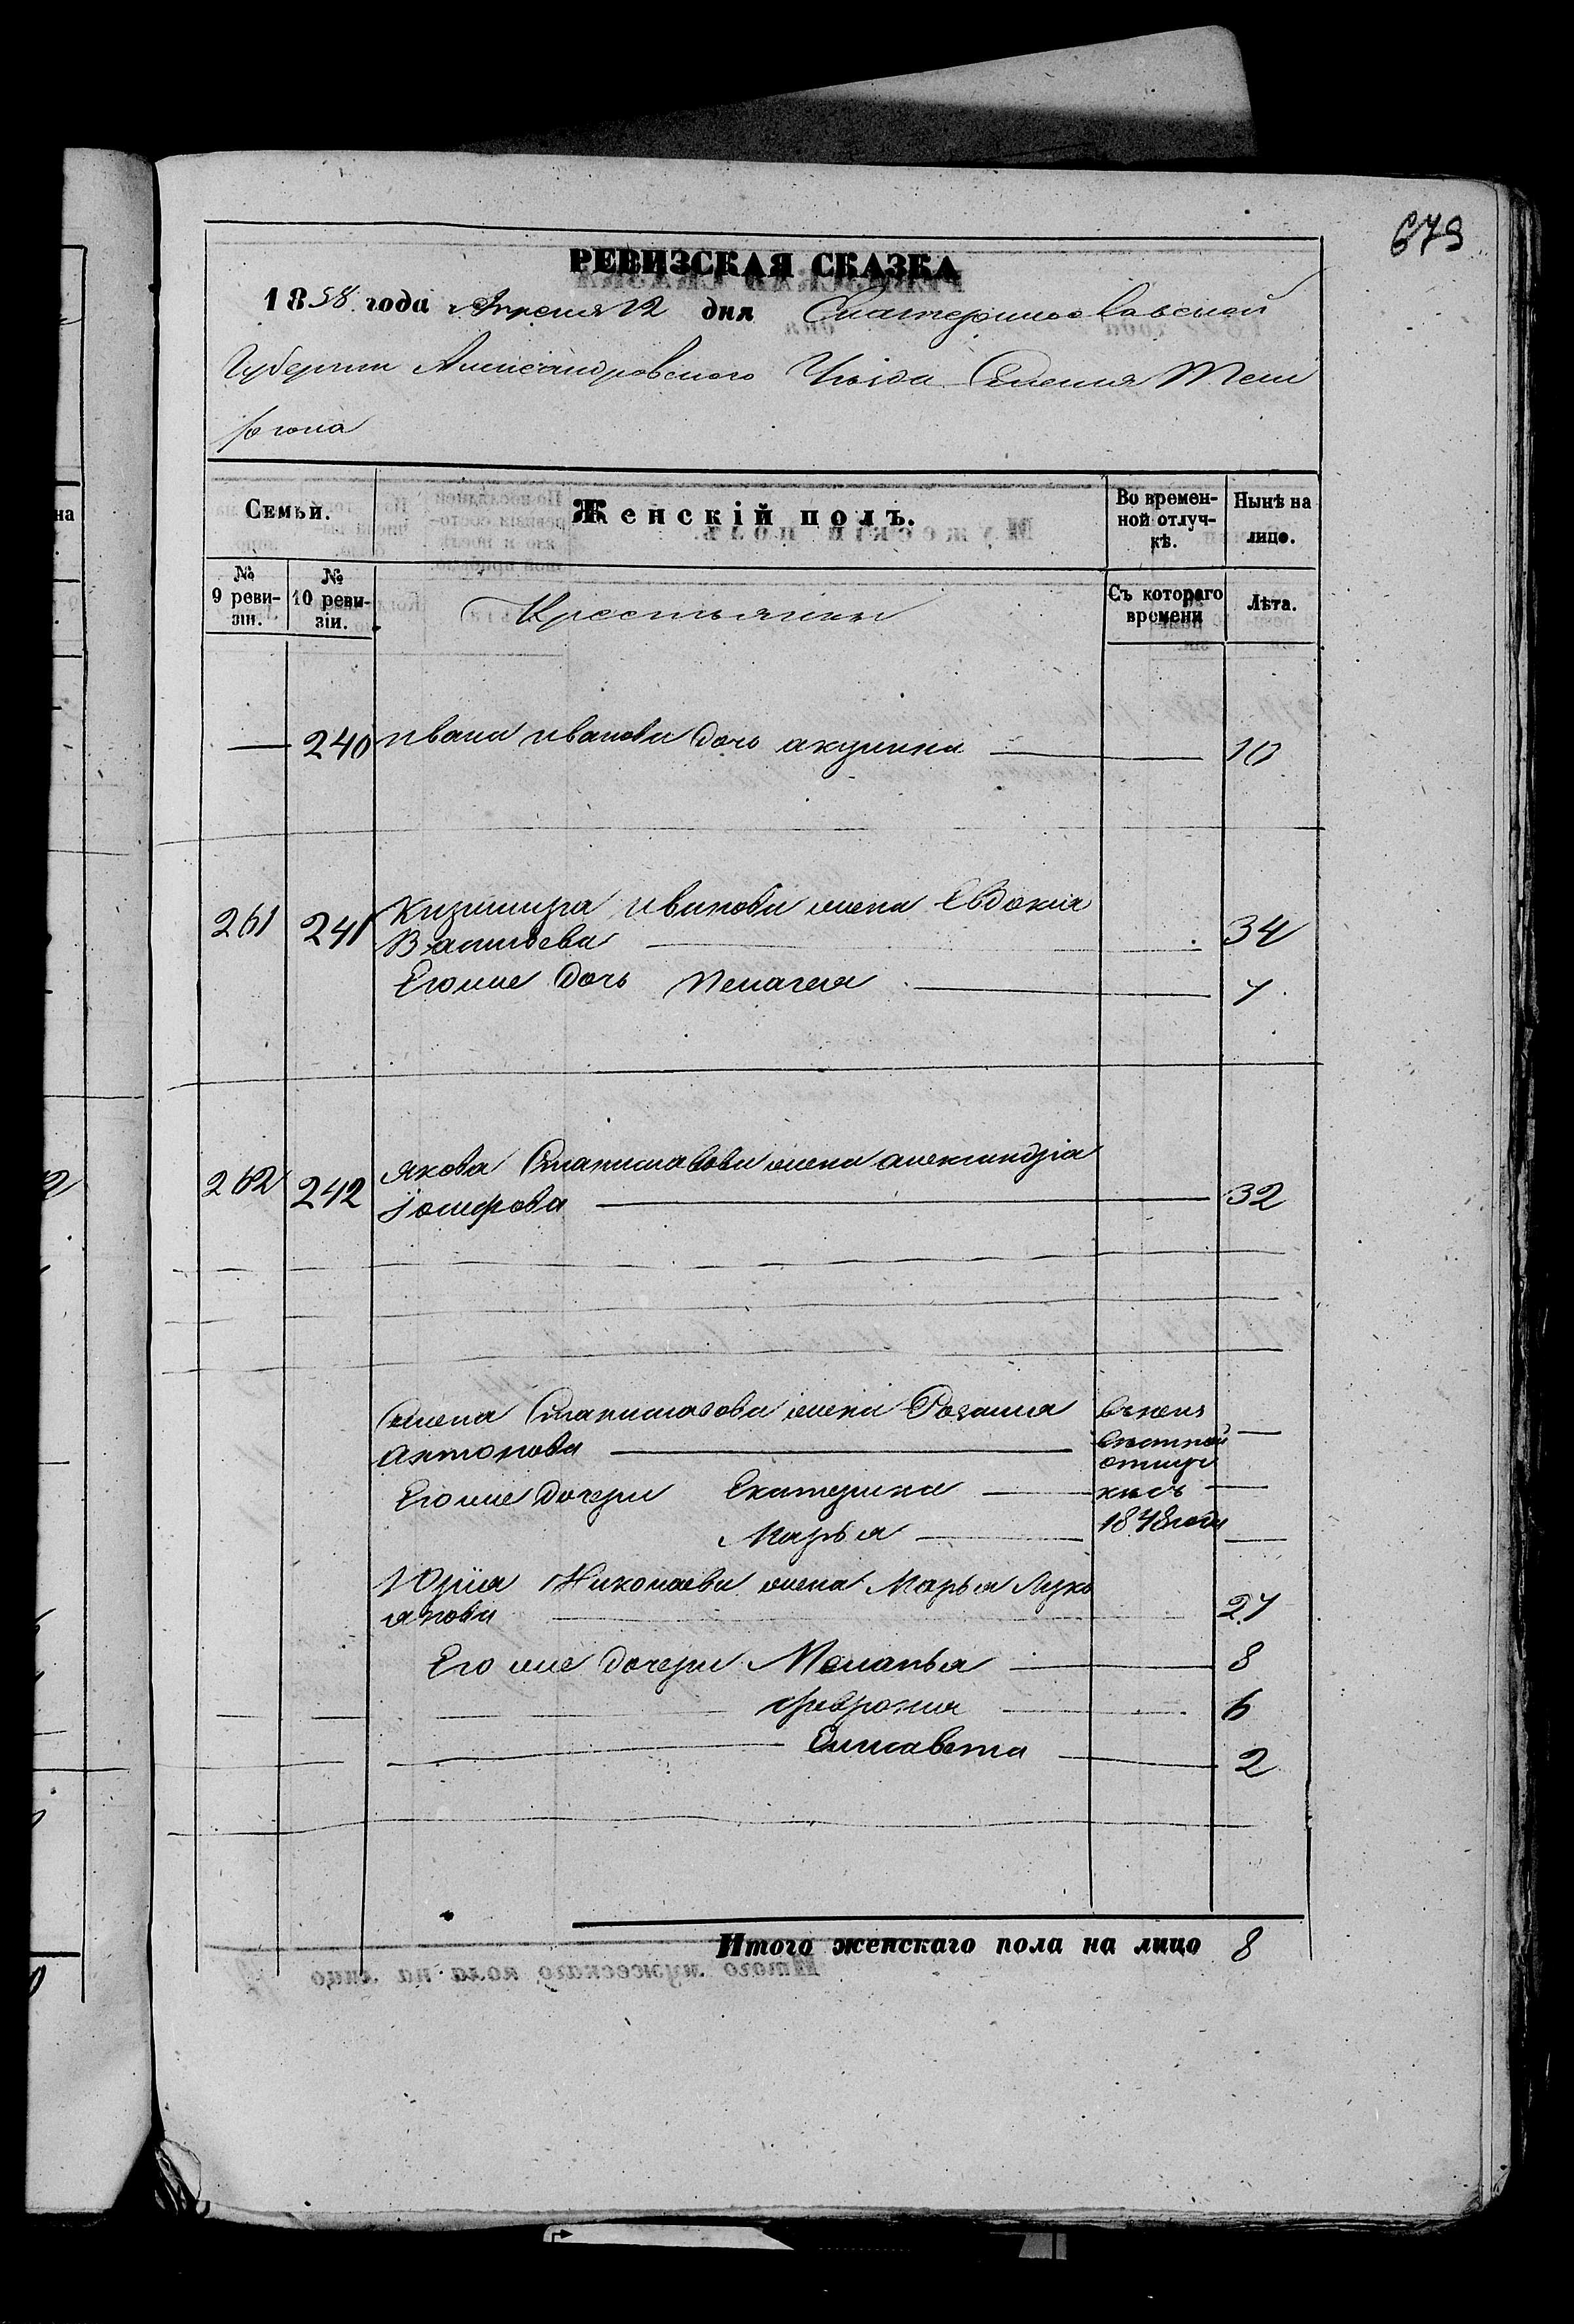 679
РЕВИЗСКАЯ СКАЗКА
1858 года Апреля 12 дня Екатеринославской
Губернии Александровского Уѣзда Селения Тем
рюка
Семьи.
Женскій полъ.
Во времен-
ной отлуч-
кѣ.
Нынѣ на
лицо.
№
9 реви-
зіи.
№
10 реви-
зіи.
Крестьяне
Съ котораго
времени
Лѣта.
— 240 ивана иванова дочь акулина — 10
261 241 Казимира иванова жена Евдокия
Васильева — 34
Его же дочь Пелагея — 7
262 242 якова Станиславова жена александра
Іосифова — 32
Станиславова жена Розалия
антонова —
въ неиз
вѣстной
отлуч
кѣ съ
1848 года
Его же дочери Екатерина —
Марья —
Юрия Николаева жена Марья Лукь
янова — 27
Его же дочери Меланья — 8
Феврония — 6
Елисавета — 2
Итого женскаго пола на лицо 8